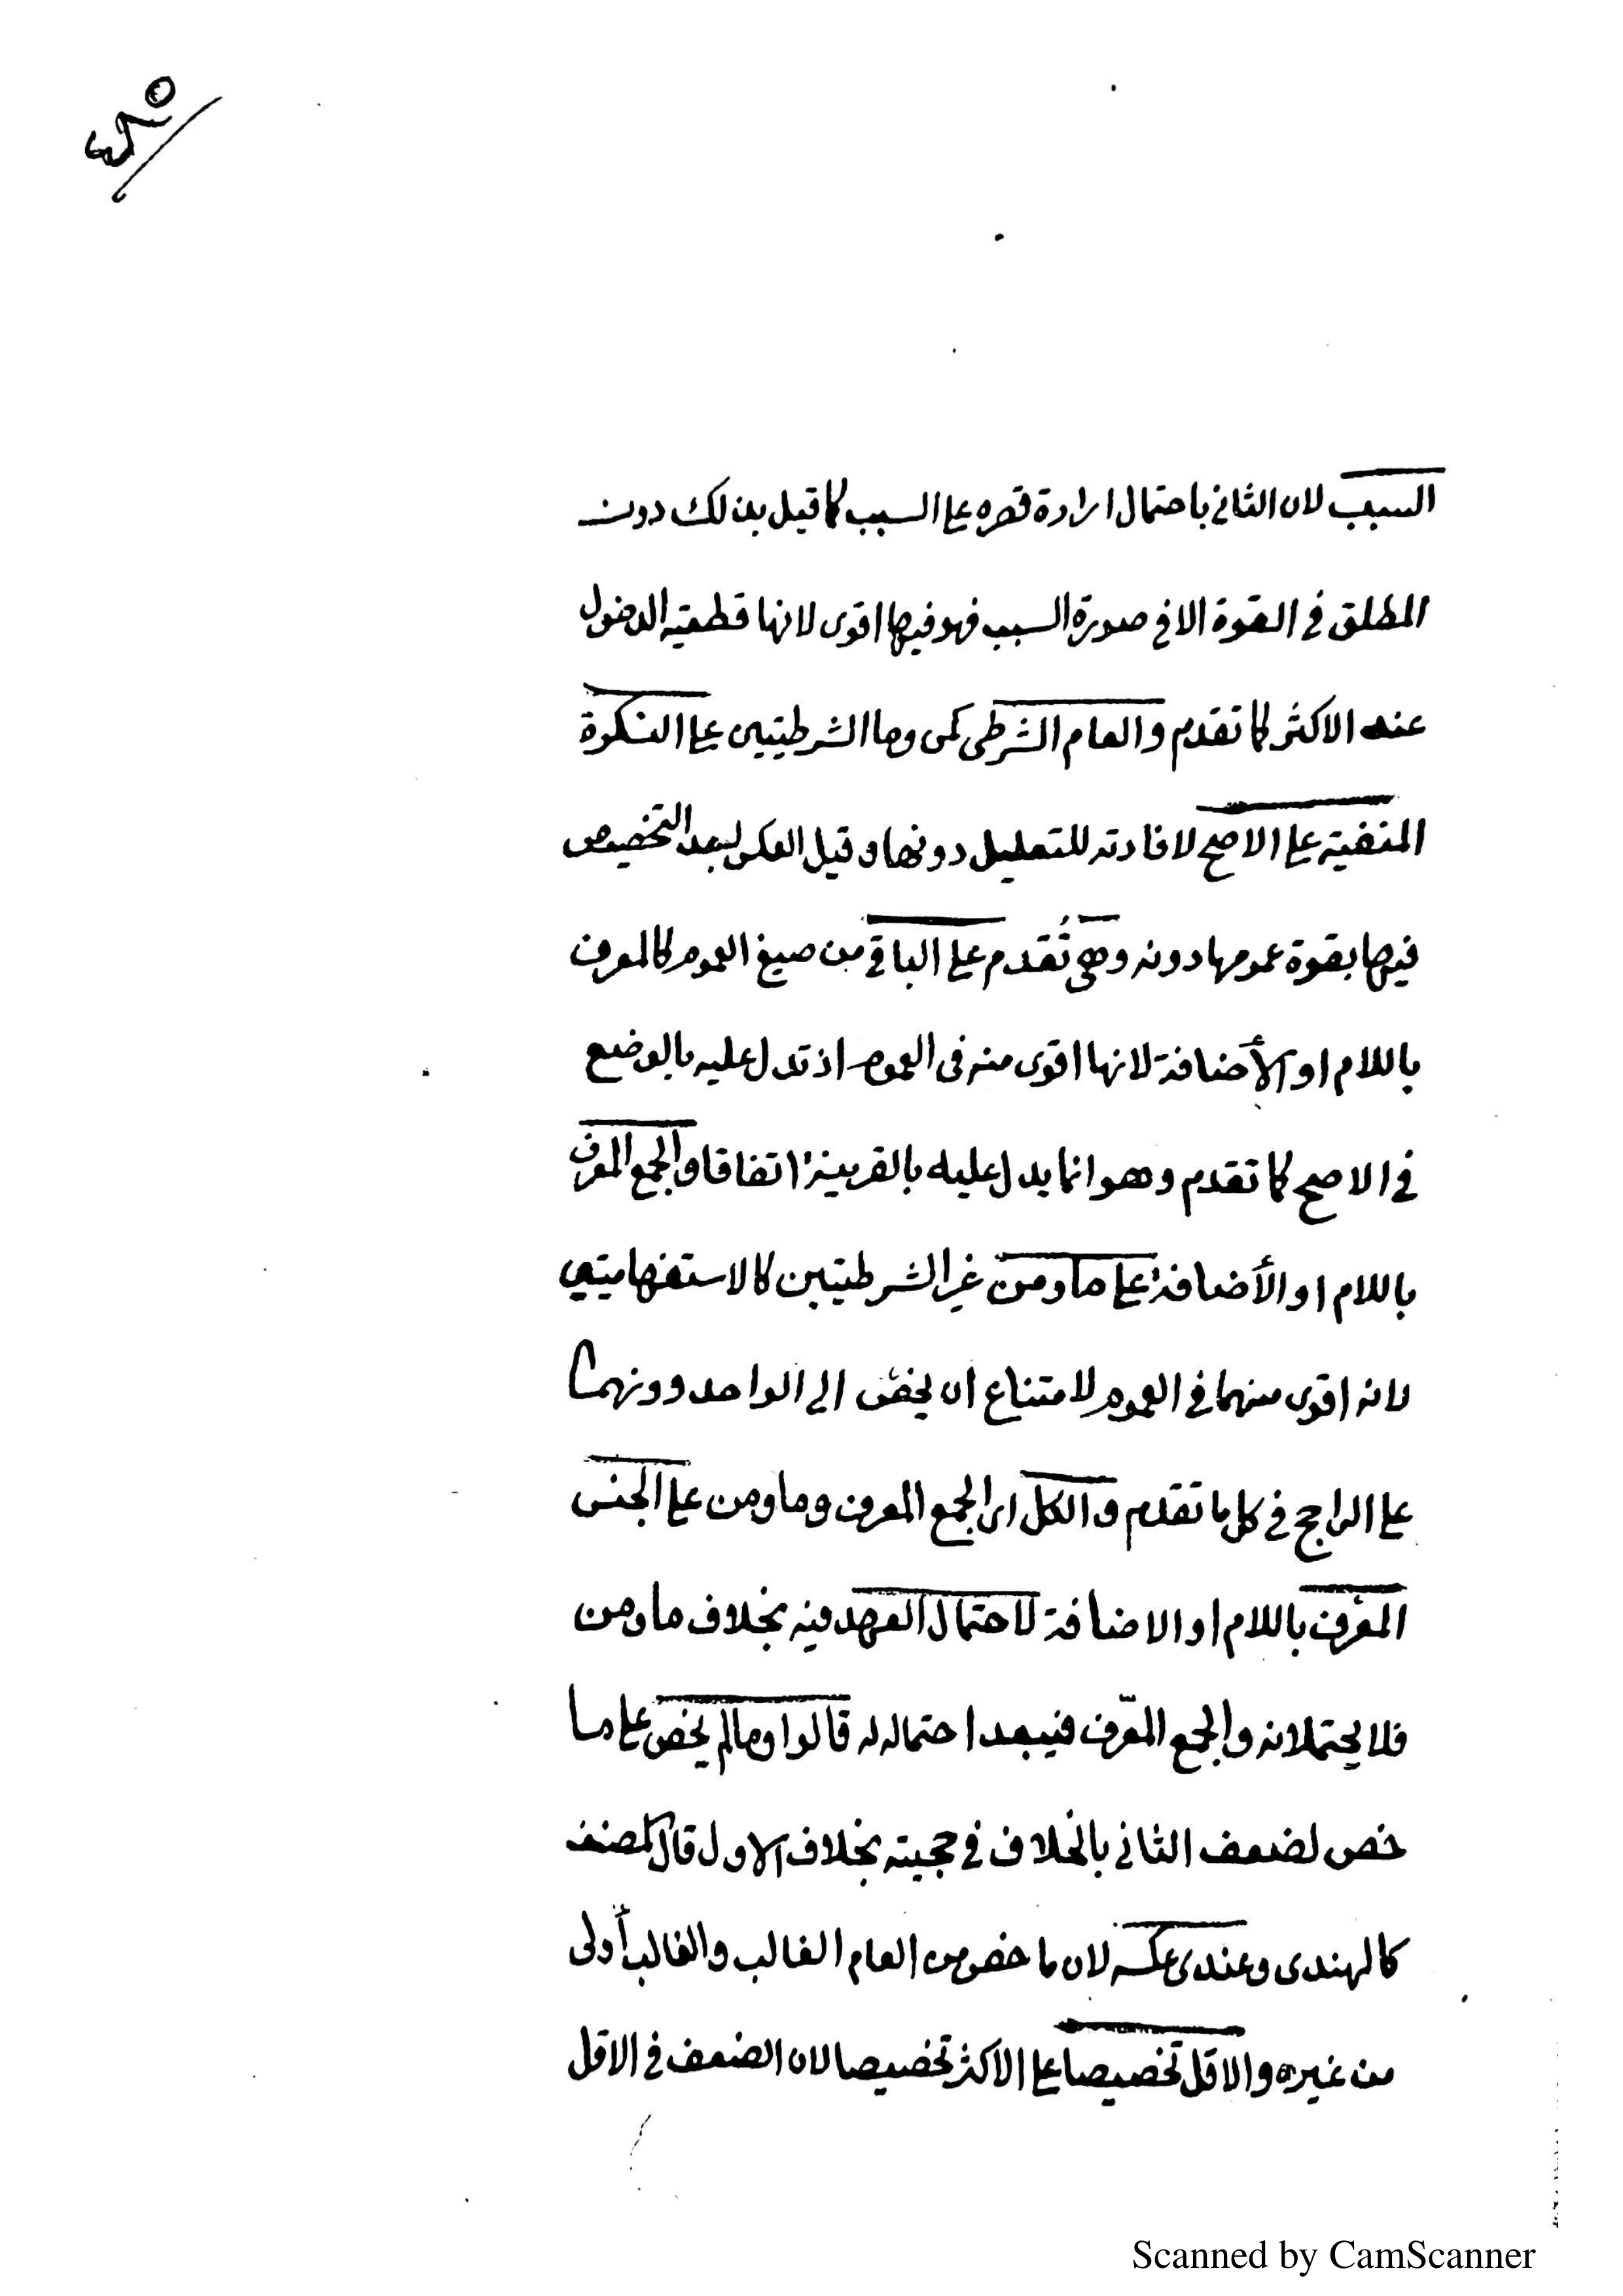 ٤٨٥
السبب لان الثاني باحتمال ارادة قصره على السبب كما قيل بذلك دون
المطلق في القوة الا في صورة السبب فهو فيها اقوى لانها قطعية الدخول
عند الاكثر كما تقدم والعام الشرطي كمن وما الشرطيتين على النكرة
المنفية على الاصح لافادته للتعليل دونها وقيل العكس لبعد التخصيص
فيها بقوة عمومها دونه وهي تُقدم على الباقي من صيغ العموم كالمعرف
باللام او الأضافة لانها اقوى منه في العموم اذ تدل عليه بالوضع
في الاصح كما تقدم وهو انما يدل عليه بالقرينة اتفاقا والجمع المعرف
باللام او الأضافة على ما ومن غير الشرطيتين كالاستفهاميتين
لانه اقوى منهما في العموم لامتناع ان يخص الى الواحد دونهما
على الراجح في كل ما تقدم والكل اى الجمع المعرف وما ومن على الجنس
المعرف باللام او الاضافة لاحتمال العهد فيه بخلاف ما ومن
فلا يحتملانه والجمع المعّرف فيبعد احتماله له قالوا وما لم يخص على ما
خص لضعف الثاني بالخلاف في حجيته بخلاف الاول قال المصنف
كالهندى وعندى عكسه لان ما خص من العام الغالب والغالب أولى
من غيره والاقل تخصيصا على الاكثر تخصيصا لان الضعف في الاقل
Scanned by CamScanner